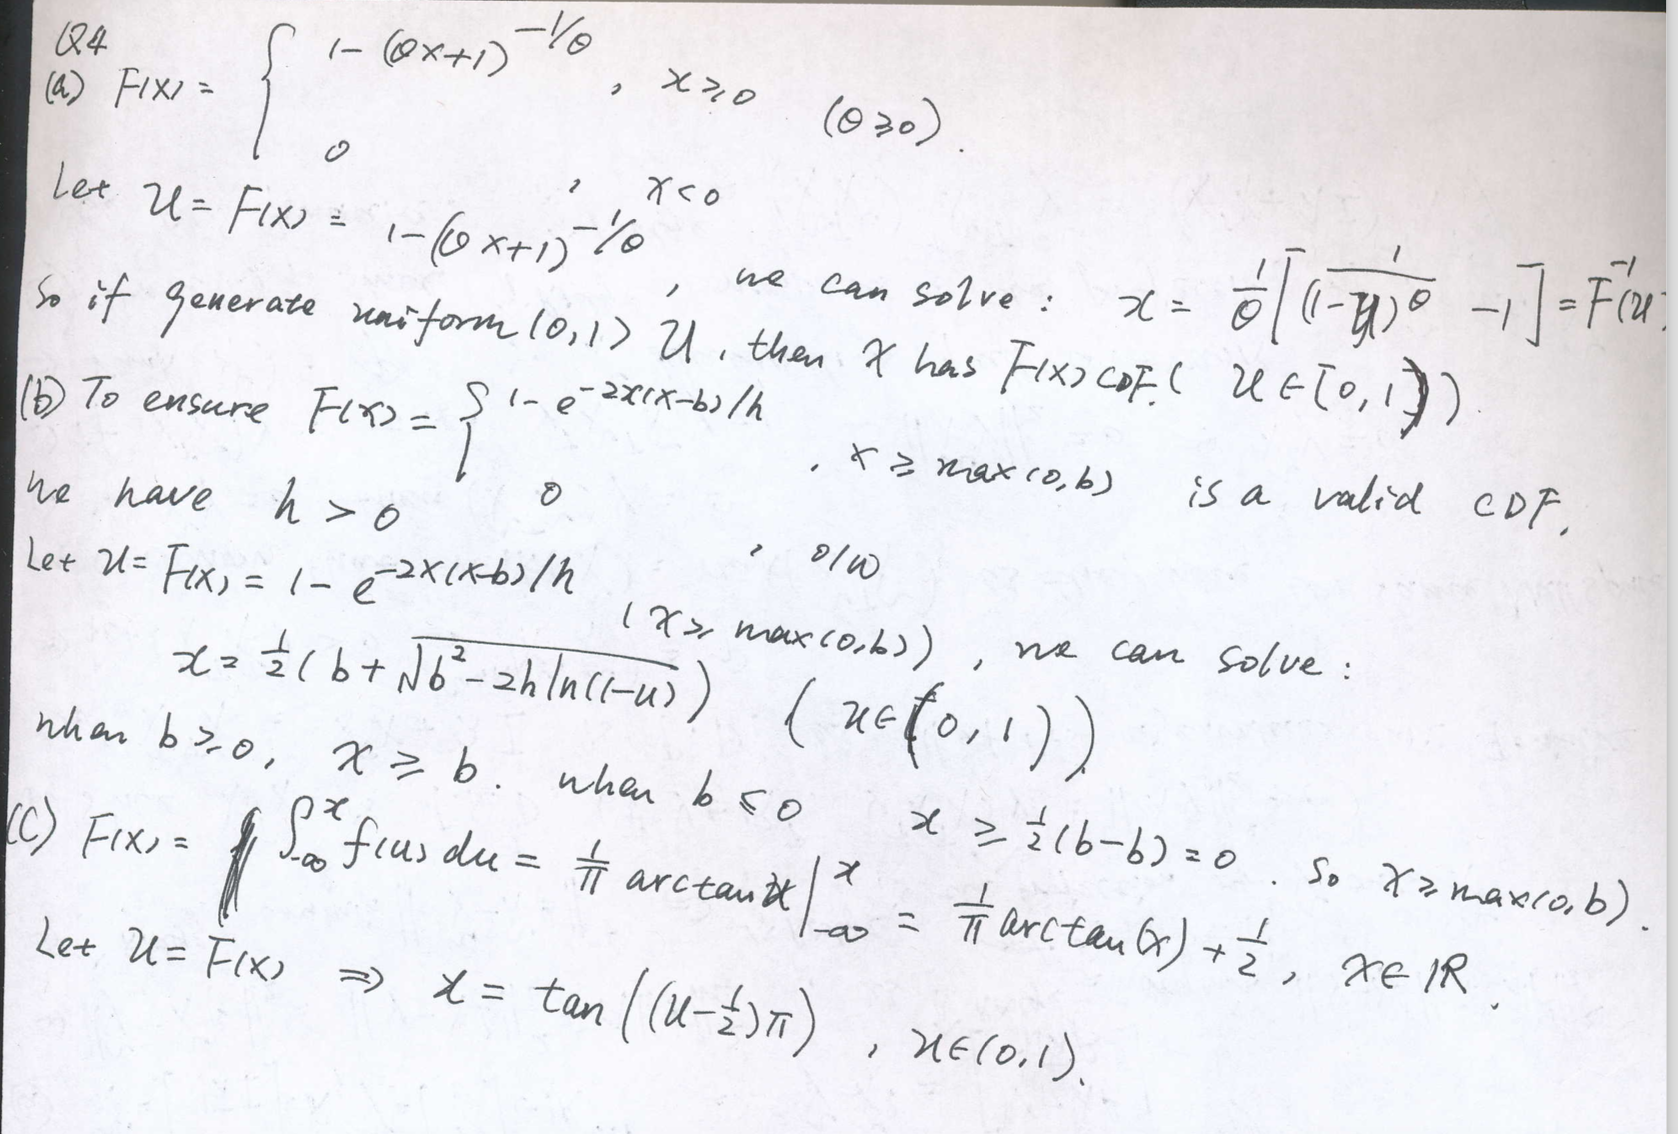 Q4
(a) F(x) = { 1-(θx+1)^{-1/θ} , x≥0 (θ≥0).
0 , x<0
Let u = F(x) = 1-(θx+1)^{-1/θ} , we can solve : x = 1/θ [ 1/(1-u)^θ -1 ] = F^{-1}(u)
So if generate uniform (0,1) U, then X has F(x) CDF. ( u∈[0,1) ).
(b) To ensure F(x) = { 1-e^{-2x(x-b)/h} , x ≥ max(0,b) is a valid CDF,
0 , o/w
we have h > 0
Let u = F(x) = 1-e^{-2x(x-b)/h} (x ≥ max(0,b)) , we can solve :
x = 1/2 ( b + √(b²-2h ln(1-u)) ) ( u∈[0,1) )
when b≥0, x ≥ b. when b ≤ 0 x ≥ 1/2(b-b) = 0 . So x ≥ max(0,b).
(c) F(x) = ∫_{-∞}^{x} f(u) du = 1/π arctan x |_{-∞}^{x} = 1/π arctan(x) + 1/2 , x∈ℝ.
Let u = F(x) ⇒ x = tan((u-1/2)π) , u∈(0,1).